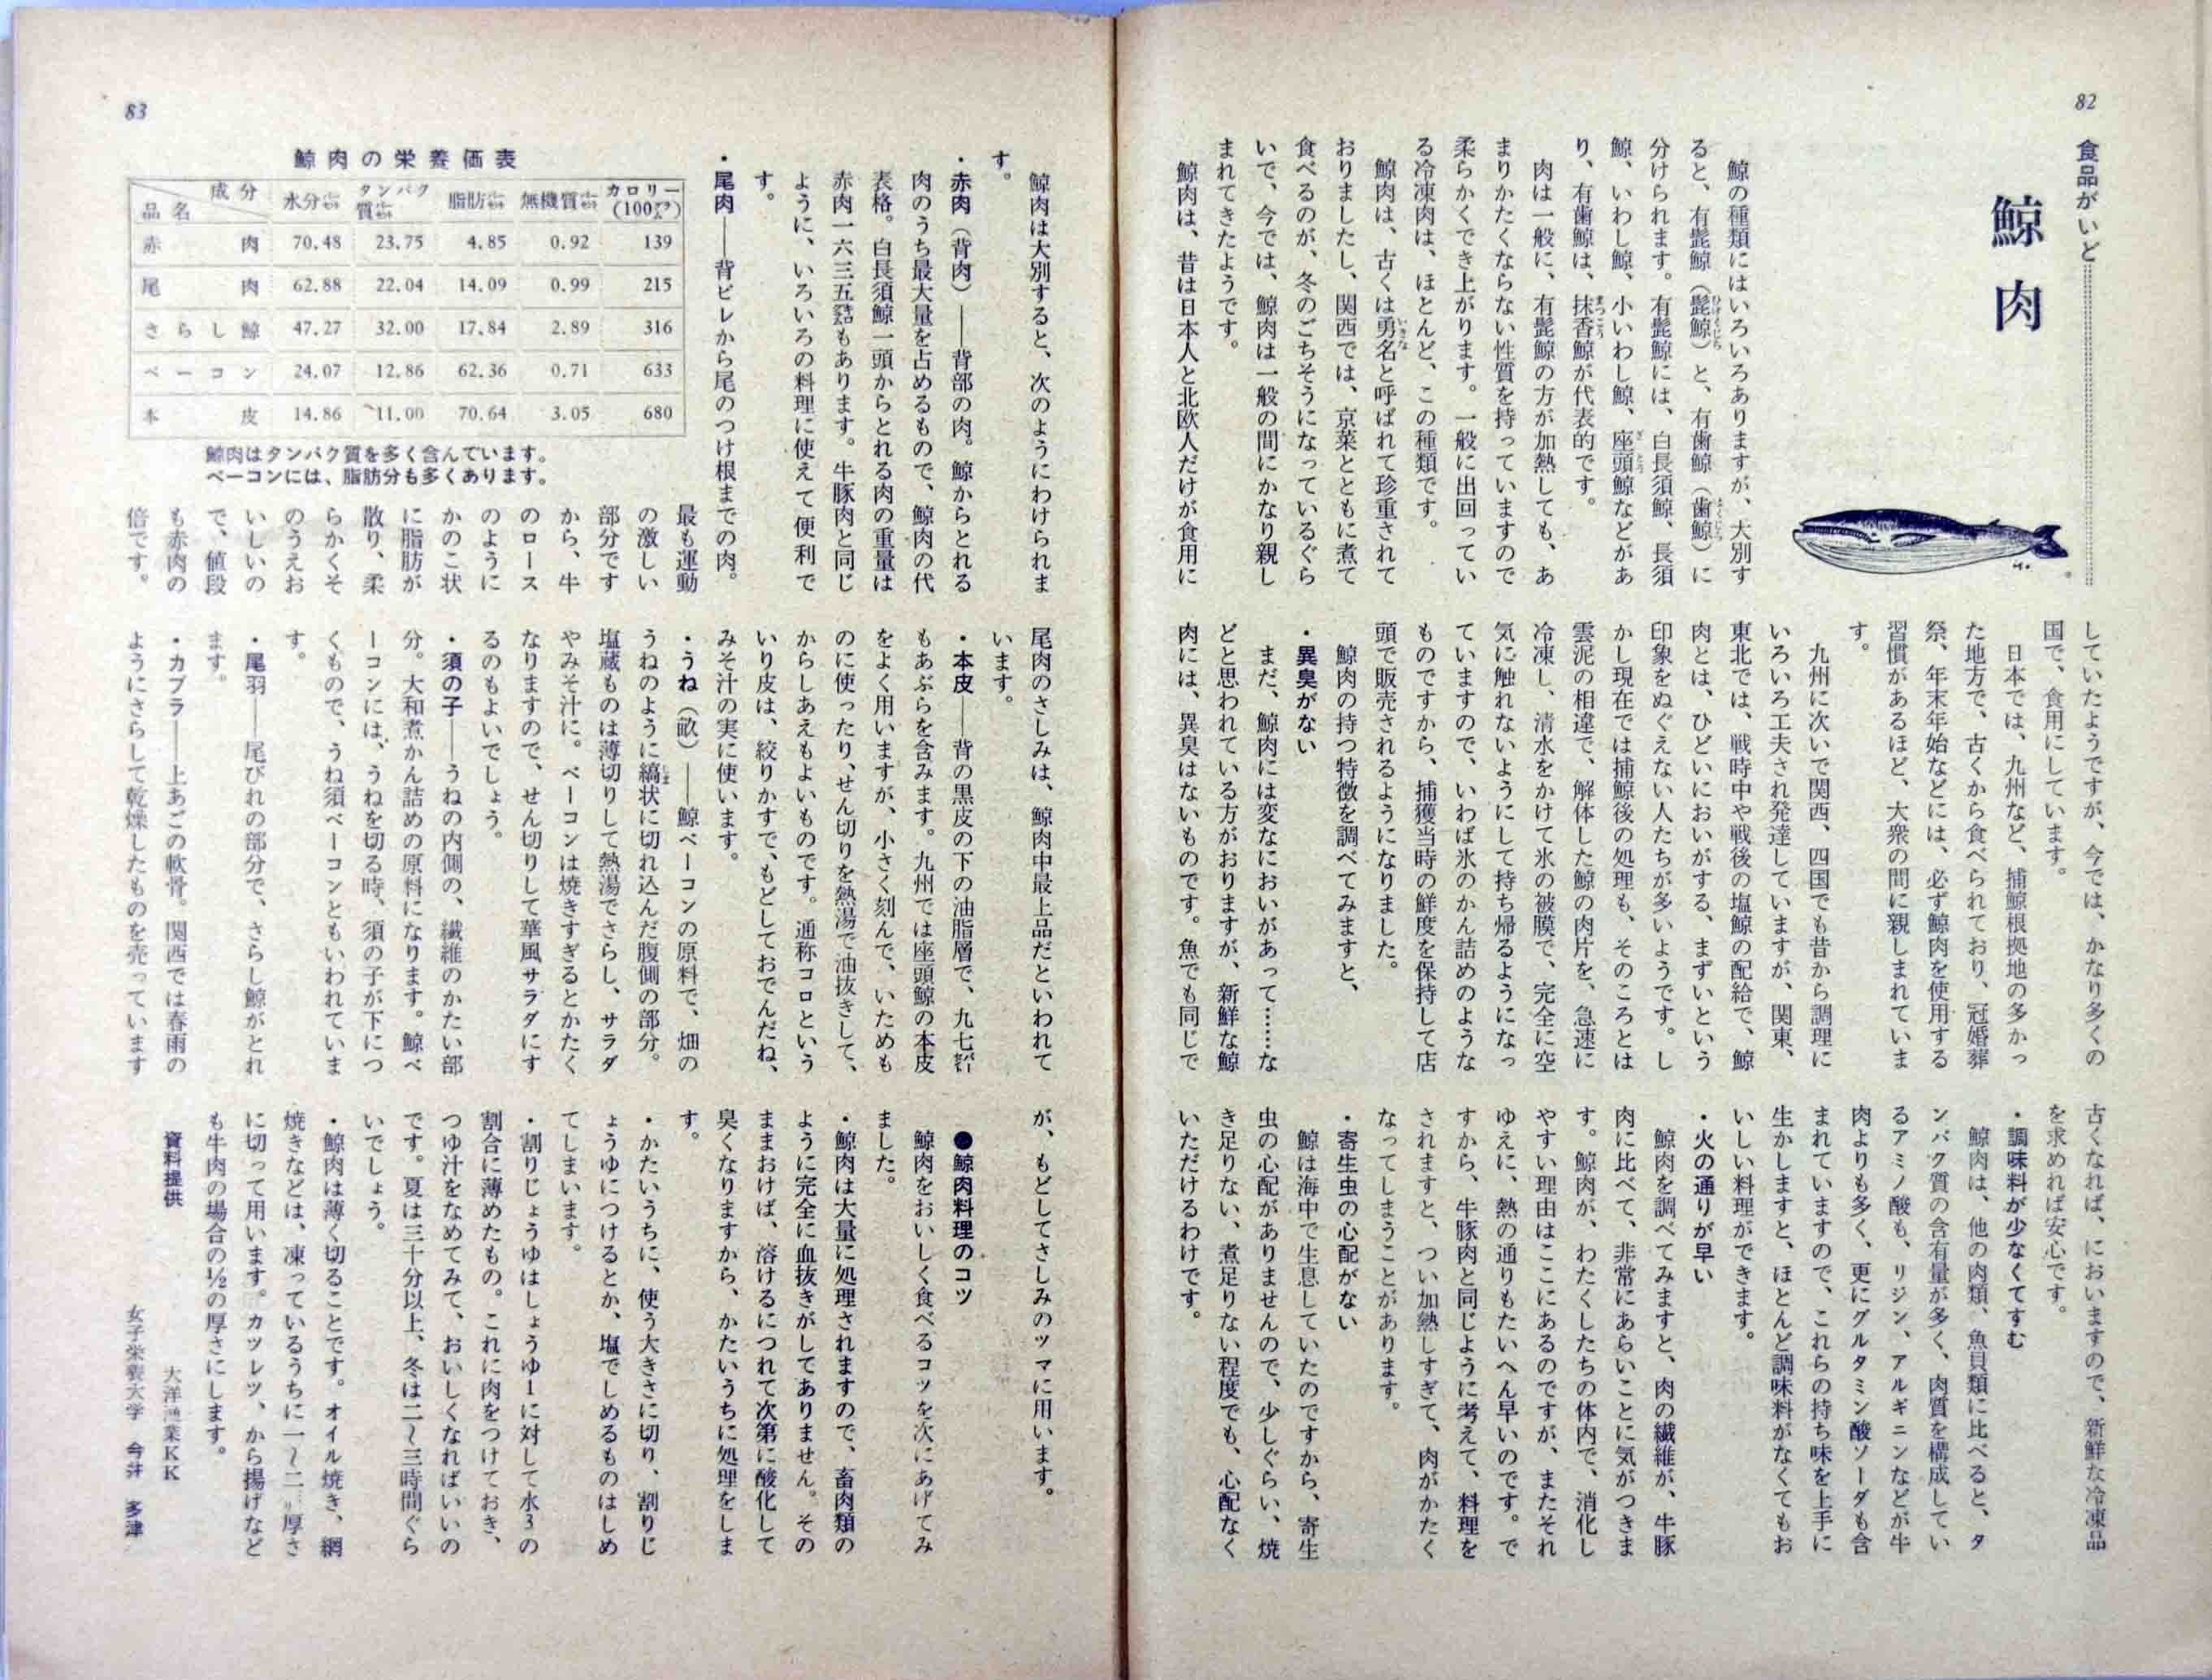 82
食品がいど
鯨肉
鯨の種類にはいろいろありますが、大別す
ると、有髭鯨（髭鯨）と、有歯鯨（歯鯨）に
分けられます。有髭鯨には、白長須鯨、長須
鯨、いわし鯨、小いわし鯨、座頭鯨などがあ
り、有歯鯨は、抹香鯨が代表的です。
肉は一般に、有髭鯨の方が加熱しても、あ
まりかたくならない性質を持っていますので
柔らかくでき上がります。一般に出回ってい
る冷凍肉は、ほとんど、この種類です。
鯨肉は、古くは勇名と呼ばれて珍重されて
おりましたし、関西では、京菜とともに煮て
食べるのが、冬のごちそうになっているぐら
いで、今では、鯨肉は一般の間にかなり親し
まれてきたようです。
鯨肉は、昔は日本人と北欧人だけが食用に
していたようですが、今では、かなり多くの
国で、食用にしています。
日本では、九州など、捕鯨根拠地の多かっ
た地方で、古くから食べられており、冠婚葬
祭、年末年始などには、必ず鯨肉を使用する
習慣があるほど、大衆の間に親しまれていま
す。
九州に次いで関西、四国でも昔から調理に
いろいろ工夫され発達していますが、関東、
東北では、戦時中や戦後の塩鯨の配給で、鯨
肉とは、ひどいにおいがする、まずいという
印象をぬぐえない人たちが多いようです。し
かし現在では捕鯨後の処理も、そのころとは
雲泥の相違で、解体した鯨の肉片を、急速に
冷凍し、清水をかけて氷の被膜で、完全に空
気に触れないようにして持ち帰るようになっ
ていますので、いわば氷のかん詰めのような
ものですから、捕獲当時の鮮度を保持して店
頭で販売されるようになりました。
鯨肉の持つ特徴を調べてみますと、
・異臭がない
まだ、鯨肉には変なにおいがあって……な
どと思われている方がおりますが、新鮮な鯨
肉には、異臭はないものです。魚でも同じで
古くなれば、においますので、新鮮な冷凍品
を求めれば安心です。
・調味料が少なくてすむ
鯨肉は、他の肉類、魚貝類に比べると、タ
ンパク質の含有量が多く、肉質を構成してい
るアミノ酸も、リジン、アルギニンなどが牛
肉よりも多く、更にグルタミン酸ソーダも含
まれていますので、これらの持ち味を上手に
生かしますと、ほとんど調味料がなくてもお
いしい料理ができます。
・火の通りが早い
鯨肉を調べてみますと、肉の繊維が、牛豚
肉に比べて、非常にあらいことに気がつきま
す。鯨肉が、わたくしたちの体内で、消化し
やすい理由はここにあるのですが、またそれ
ゆえに、熱の通りもたいへん早いのです。で
すから、牛豚肉と同じように考えて、料理を
されますと、つい加熱しすぎて、肉がかたく
なってしまうことがあります。
・寄生虫の心配がない
鯨は海中で生息していたのですから、寄生
虫の心配がありませんので、少しぐらい、焼
き足りない、煮足りない程度でも、心配なく
いただけるわけです。
83
鯨肉は大別すると、次のようにわけられま
す。
・赤肉（背肉）――背部の肉。鯨からとれる
肉のうち最大量を占めるもので、鯨肉の代
表格。白長須鯨一頭からとれる肉の重量は
赤肉一六三三五もあります。牛豚肉と同じ
ように、いろいろの料理に使えて便利で
す。
・尾肉――背ビレから尾のつけ根までの肉。
最も運動
の激しい
部分です
から、牛
のロース
のように
かのこ状
に脂肪が
散り、柔
らかくそ
のうえお
いしいの
で、値段
も赤肉の
倍です。
鯨肉の栄養価表
品名 成分 水分 タンパク質 脂肪 無機質 カロリー(100)
赤肉 70.48 23.75 4.85 0.92 139
尾肉 62.88 22.04 14.09 0.99 215
さらし鯨 47.27 32.00 17.84 2.89 316
ベーコン 24.07 12.86 62.36 0.71 633
本皮 14.86 11.00 70.64 3.05 680
鯨肉はタンパク質を多く含んでいます。
ベーコンには、脂肪分も多くあります。
尾肉のさしみは、鯨肉中最上品だといわれて
います。
・本皮――背の黒皮の下の油脂層で、九七
もあぶらを含みます。九州では座頭鯨の本皮
をよく用いますが、小さく刻んで、いためも
のに使ったり、せん切りを熱湯で油抜きして、
からしあえもよいものです。通称コロという
いり皮は、絞りかすで、もどしておでんだね、
みそ汁の実に使います。
・うね（畝）――鯨ベーコンの原料で、畑の
うねのように縞状に切れ込んだ腹側の部分。
塩蔵ものは薄切りして熱湯でさらし、サラダ
やみそ汁に。ベーコンは焼きすぎるとかたく
なりますので、せん切りして華風サラダにす
るのもよいでしょう。
・須の子――うねの内側の、繊維のかたい部
分。大和煮かん詰めの原料になります。鯨ベ
ーコンには、うねを切る時、須の子が下につ
くもので、うね須ベーコンともいわれていま
す。
・尾羽――尾びれの部分で、さらし鯨がとれ
ます。
・カブラ――上あごの軟骨。関西では春雨の
ようにさらして乾燥したものを売っています
が、もどしてさしみのツマに用います。
●鯨肉料理のコツ
鯨肉をおいしく食べるコツを次にあげてみ
ました。
・鯨肉は大量に処理されますので、畜肉類の
ように完全に血抜きがしてありません。その
ままおけば、溶けるにつれて次第に酸化して
臭くなりますから、かたいうちに処理をしま
す。
・かたいうちに、使う大きさに切り、割りじ
ょうゆにつけるとか、塩でしめるものはしめ
てしまいます。
・割りじょうゆはしょうゆ1に対して水3の
割合に薄めたもの。これに肉をつけておき、
つゆ汁をなめてみて、おいしくなればいいの
です。夏は三十分以上、冬は二〜三時間ぐら
いでしょう。
・鯨肉は薄く切ることです。オイル焼き、網
焼きなどは、凍っているうちに一〜二厚さ
に切って用います。カツレツ、から揚げなど
も牛肉の場合の½の厚さにします。
資料提供
大洋漁業KK
女子栄養大学 今井 多津